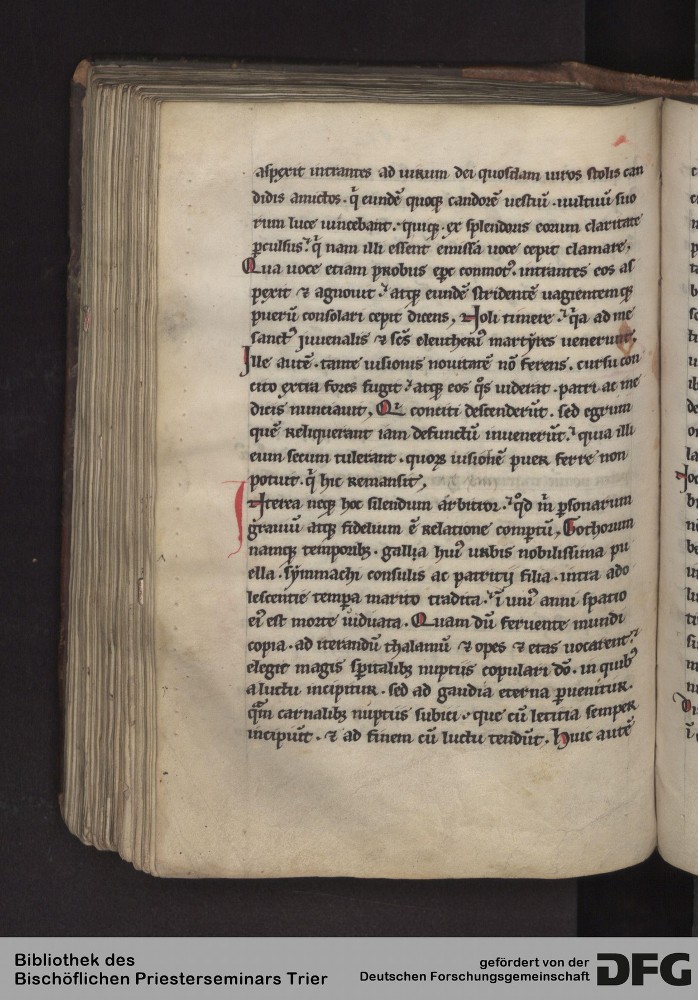 aspexit intrantes ad uirum dei quosdam uiros stolis can
didis amictos. q̓ eundē quoq; candorē uestiū. uultuū suo
rum luce uincebant. quiq; ex splendoris eorum claritate
ꝑculsus. q̓ nam illi essent emissa uoce cepit clamare,
Qua uoce etiam probus epc conmot᾿. intrantes eos as
pexit ⁊ agnouit. atq; eundē stridentē uagientemq;
puerū consolari cepit dicens, Noli timere. q̓a ad me
sanct᾿ iuuenalis ⁊ scs eleutheri᾿ martyres uenerunt,
Ille autē. tante uisionis nouitatē nō ferens. cursu con
cito extra fores fugit. atq; eos q̊s uiderat. patri ac me
dicis nunciauit, Qi conciti descenderūt. sed egrum
quē reliquerant iam defunctū inuenerūt. quia illi
eum secum tulerant. quoꝝ uisionē puer ferre non
potuit. q̓ hic remansit,
INterea neq; hoc silendum arbitror. qd m̄ ꝑsonarum
grauiū atq; fidelium ē relatione comꝑtū, Gothorum
namq; temporibꝫ. gallia hui᾿ urbis nobilissima pu
ella. symmachi consulis ac patricij filia. intra ado
lescentie tempora marito tradita. ī uni᾿ anni spatio
ei᾿ est morte uiduata. Quam dū feruente mundi
copia. ad iterandū thalamū ⁊ opes ⁊ etas uocarent.
elegit magis sp̄italibꝫ nuptiis copulari dō. in quib᾿
a luctu incipitur. sed ad gaudia eterna ꝑuenitur.
q̄m carnalibꝫ nuptiis subici. que cū leticia semper
incipiūt. ⁊ ad finem cū luctu tendūt. Huic autē
Bibliothek des
Bischöflichen Priesterseminars Trier
gefördert von der
Deutschen Forschungsgemeinschaft
DFG